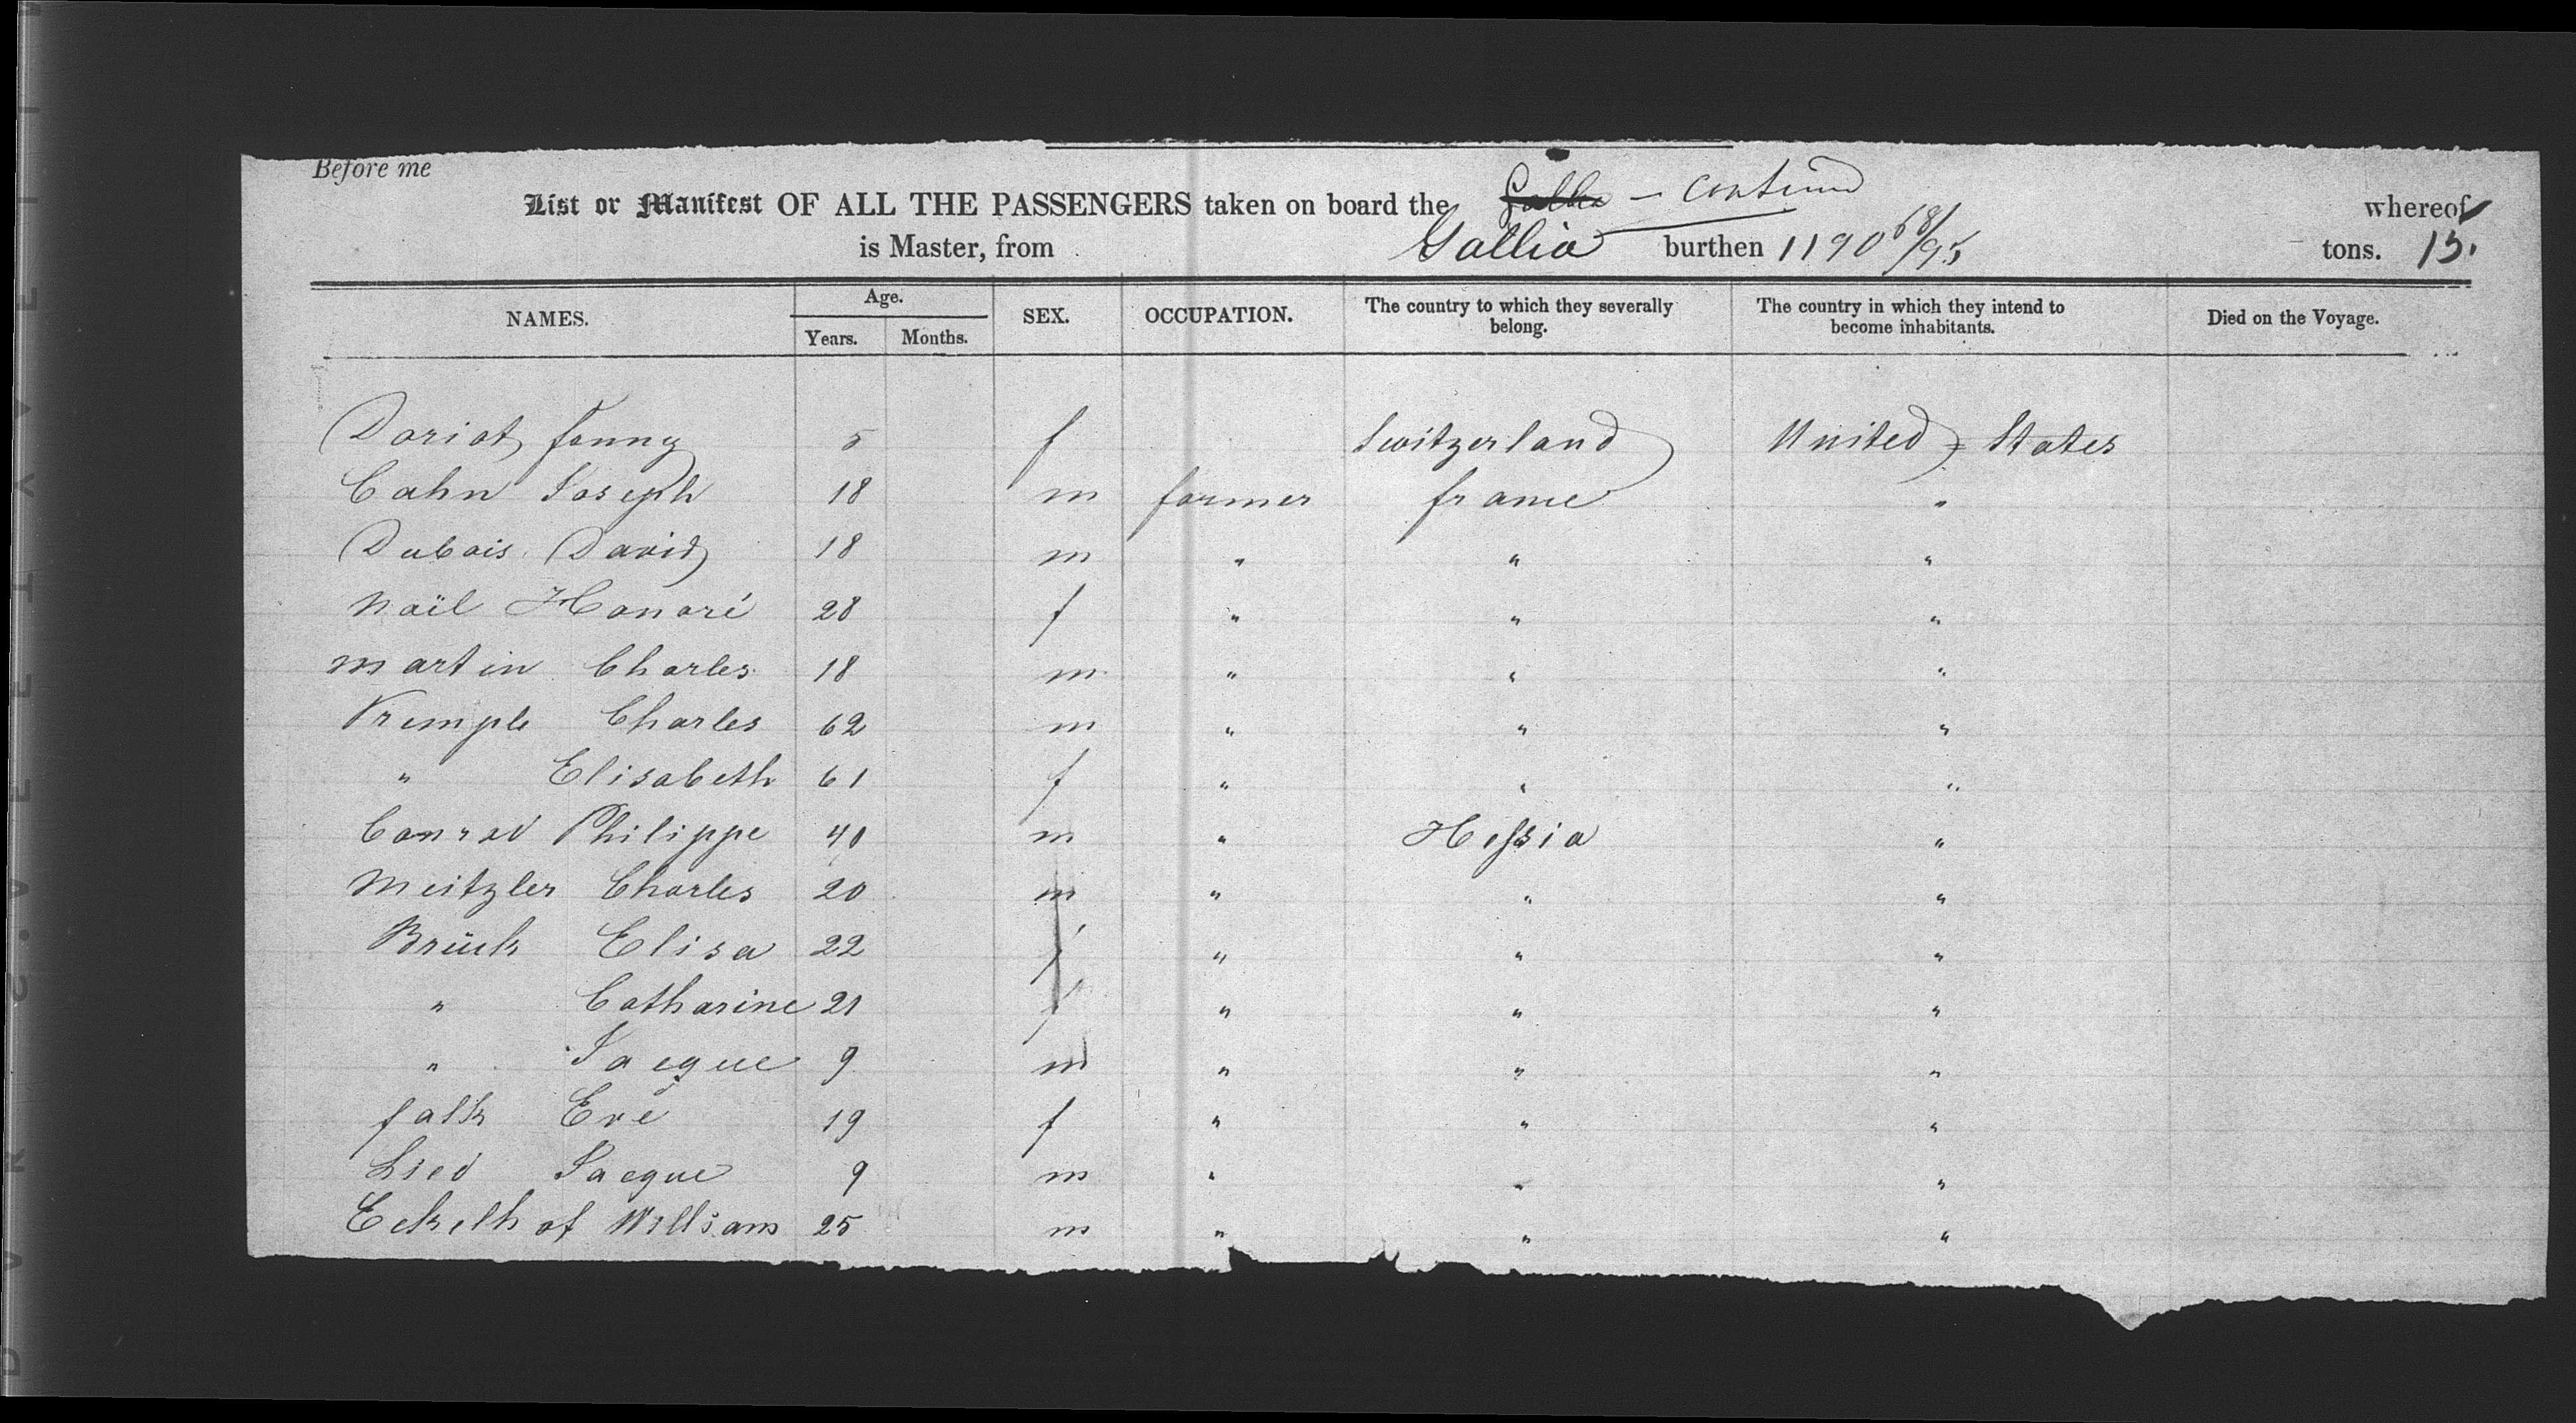 Before me
List or Manifest OF ALL THE PASSENGERS taken on board the Gallia – continued whereof
is Master, from Gallia burthen 1190 68/95 tons. 15.
NAMES. Age. Years. Months. SEX. OCCUPATION. The country to which they severally belong. The country in which they intend to become inhabitants. Died on the Voyage.
Doriot fanny 5 f Switzerland United States
Cahn Joseph 18 m farmer france "
Dubois David 18 m " " "
Noïl Honoré 28 f " " "
Martin Charles 18 m " " "
Kremple Charles 62 m " " "
" Elisabeth 61 f " " "
Conrad Philippe 40 m " Hessia "
Meitzler Charles 20 m " " "
Brück Elisa 22 f " " "
" Catharine 21 f " " "
" Jacque 9 m " " "
falk Eve 19 f " " "
Lied Jacque 9 m " " "
Eckelhof William 25 m " " "